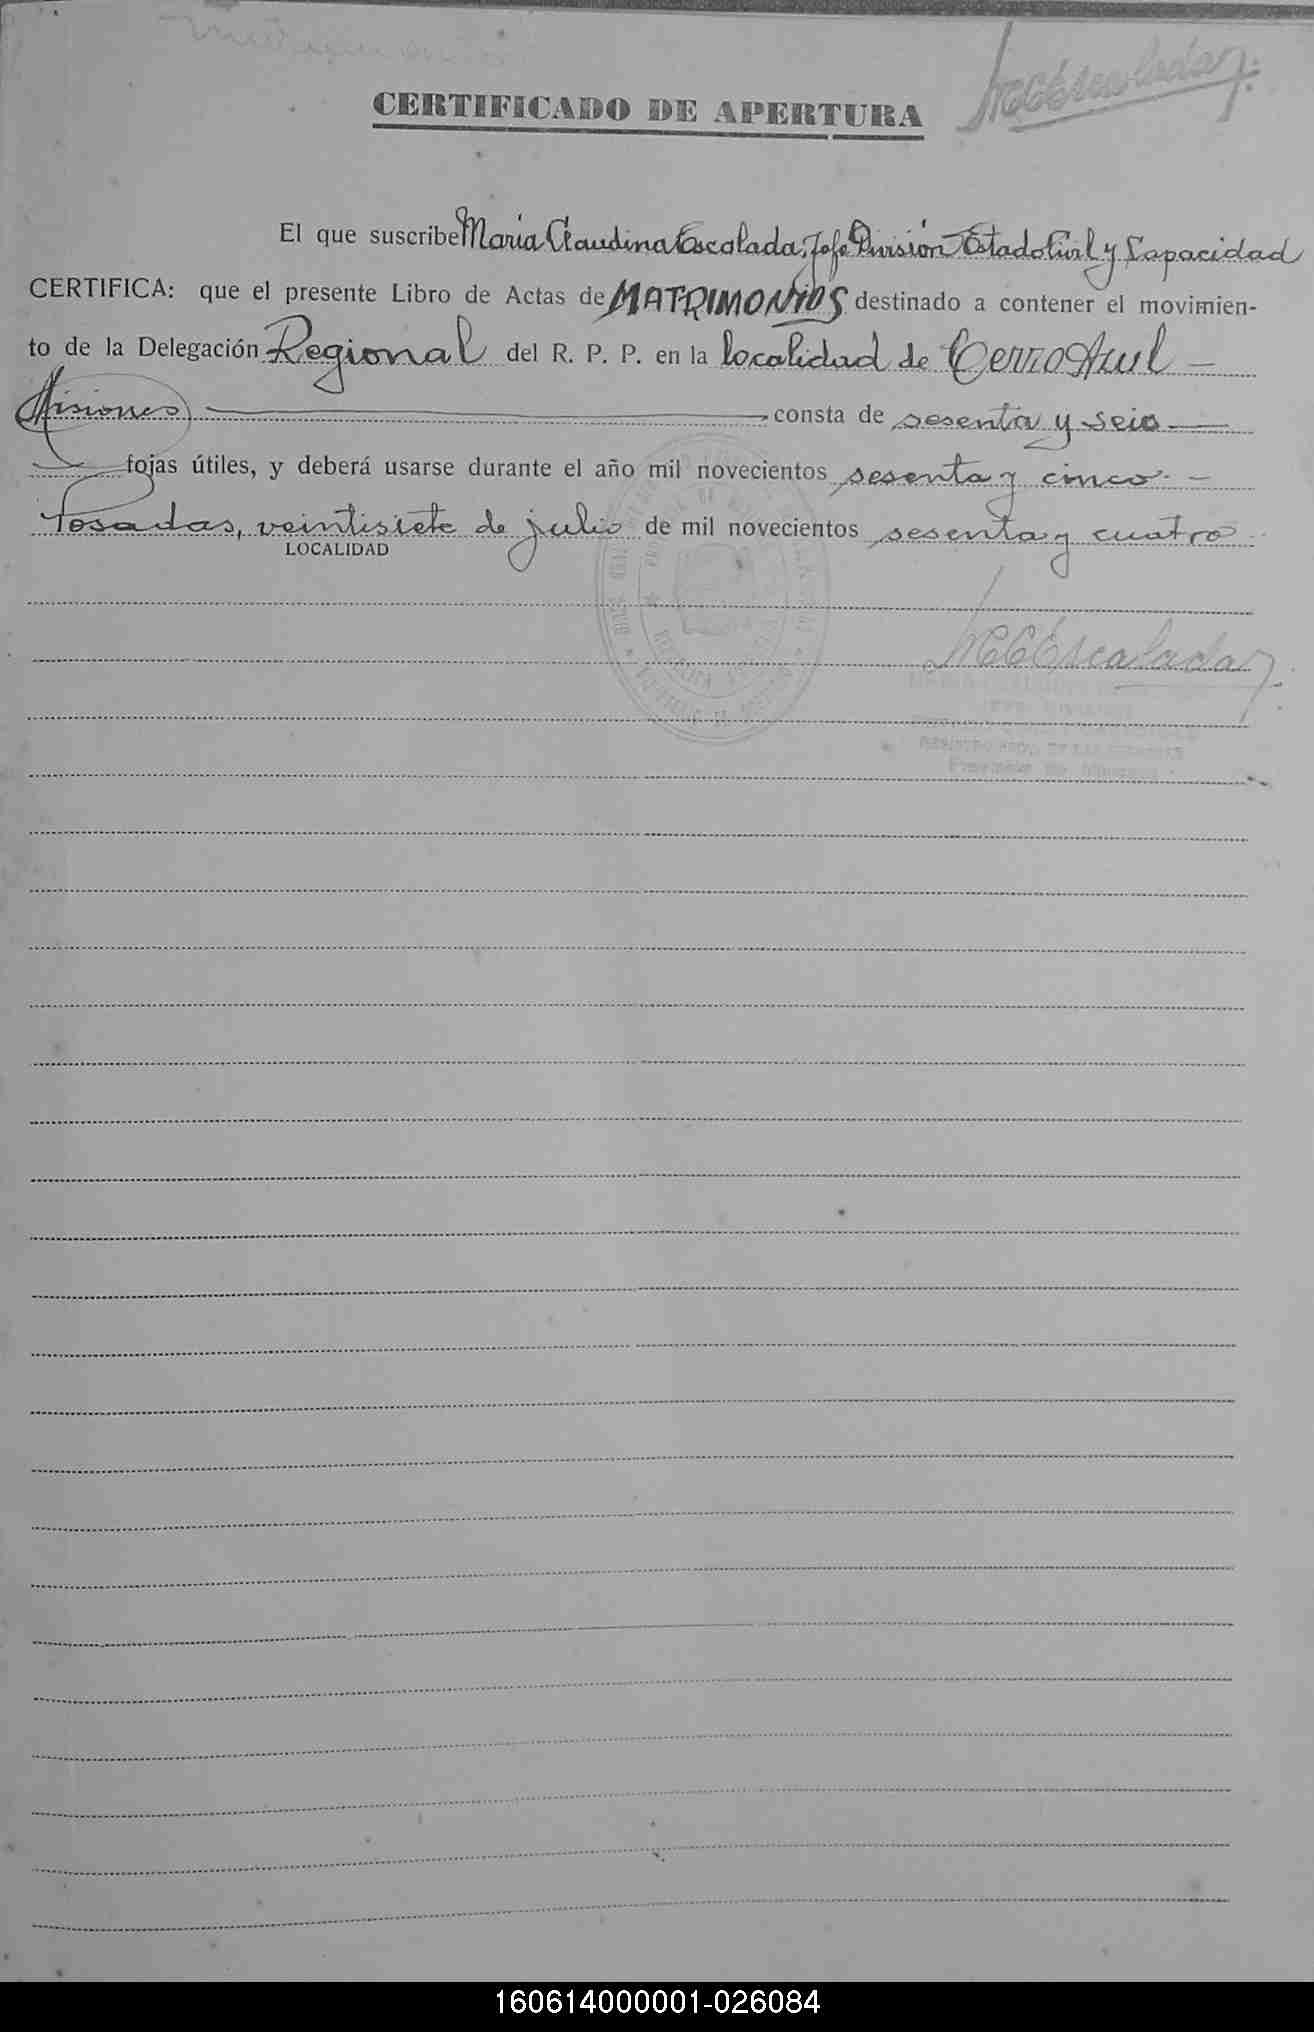 MCEscalada
CERTIFICADO DE APERTURA
El que suscribe Maria Claudina Escalada, Jefe División Estado Civil y Capacidad
CERTIFICA: que el presente Libro de Actas de MATRIMONIOS destinado a contener el movimien-
to de la Delegación Regional del R. P. P. en la localidad de Cerro Azul -
Misiones consta de sesenta y seis
fojas útiles, y deberá usarse durante el año mil novecientos sesenta y cinco. -
Posadas, veintisiete de julio de mil novecientos sesenta y cuatro
LOCALIDAD
MCEscalada
160614000001-026084